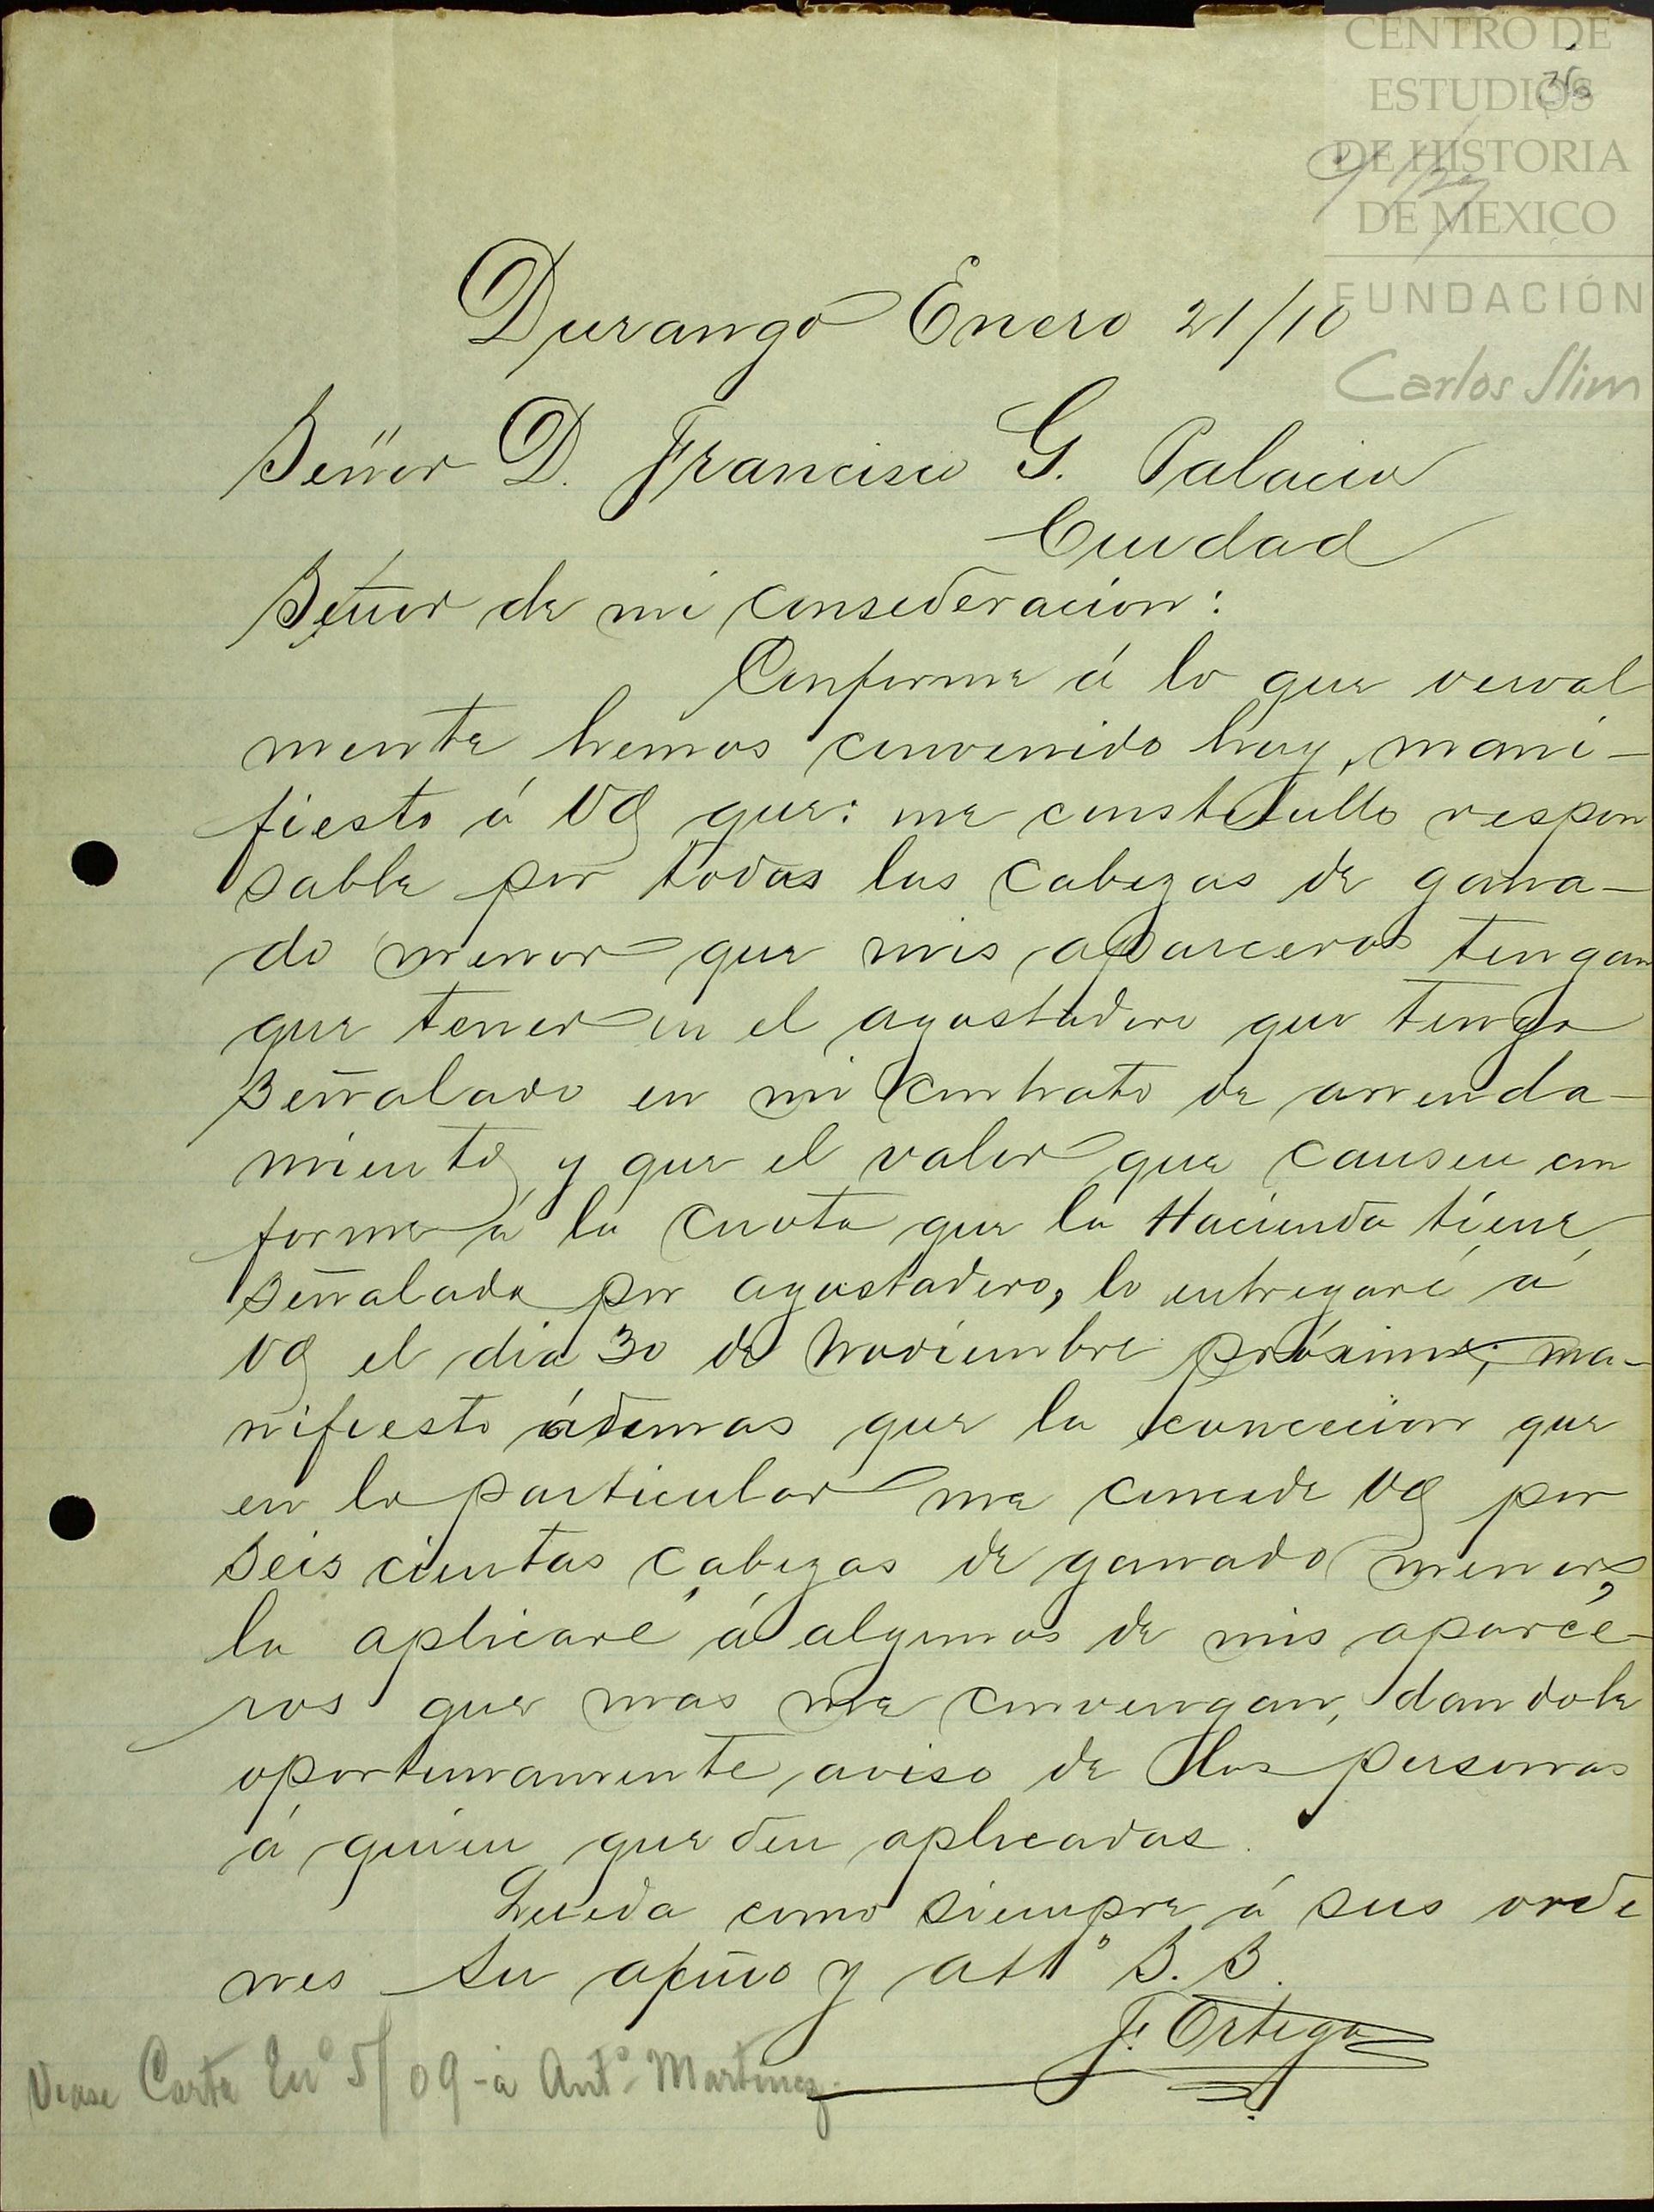 CENTRO DE
ESTUDIOS
DE HISTORIA
DE MEXICO
FUNDACIÓN
Carlos Slim
36
Durango Enero 21/10
Señor D. Francisco G. Palacio
Ciudad
Señor de mi consederacion:
Conforme á lo que verval
mente hemos convenido hoy, mani-
fiesto á Vd que: me constetullo respon
sable por todas las cabezas de gana-
do menor que mis aparceros tengan
que tener en el agostadero que tengo
señalado en mi contrato de arrenda-
miento y que el valor que causen con
forme á la cuota que la Hacienda tiene
señalada por agostadero, lo entregaré á
Vd el dia 30 de Noviembre próximo; ma-
nifiesto ádemas que la concecion que
en lo particular me concede Vd por
seis cientas cabezas de ganado menor,
la aplicaré á algunos de mis aparce-
ros que mas me convengan, dandole
oportunamente aviso de las personas
á quien queden aplicadas.
Queda como siempre á sus orde
nes su afmo y atto S. S.
F. Ortega
Vease Carta Eno 5/09 - á Anto Martinez.